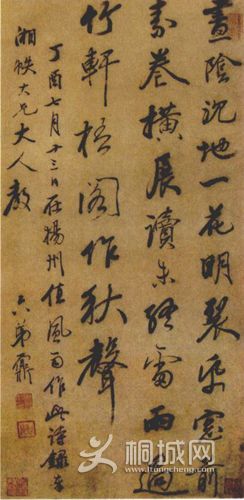 晝陰沉地一花明棐几窗前
素卷橫展讀未終雷雨過
竹軒梧閣作秋聲
丁酉七月十三日在揚州值風雨作此詩錄奉
湘大兄大人教
弟鼐
桐城网
itongcheng.com